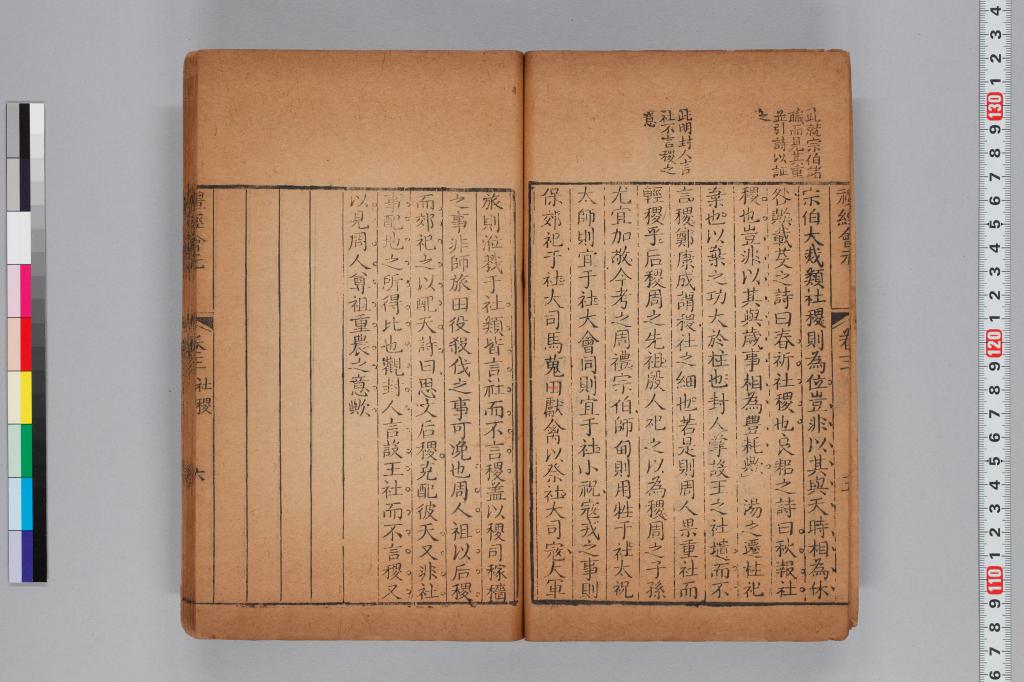 此就宗伯諸
職而見其重
並引詩以証
之
此明封人言
社不言稷之
意
宗伯大烖類社稷則為位豈非以其與天時相為休
咎歟載芟之詩曰春祈社稷也良耜之詩曰秋報社
稷也豈非以其與歲事相為豐耗歟 湯之遷柱祀
棄也以棄之功大於柱也封人掌設王之社壝而不
言稷鄭康成謂稷社之細也若是則周人果重社而
輕稷乎后稷周之先祖殷人祀之以為稷周之子孫
尤宜加敬今考之周禮宗伯師甸則用牲于社大祝
太師則宜于社大會同則宜于社小祝寇戎之事則
保郊祀于社大司馬蒐田獻禽以祭社大司寇大軍
旅則涖戮于社類皆言社而不言稷蓋以稷司稼穡
之事非師旅田役殺伐之事可凂也周人祖以后稷
而郊祀之以配天詩曰思文后稷克配彼天又非社
事配地之所得比也觀封人言設王社而不言稷又
以見周人尊祖重農之意歟
禮經會元
卷三
社稷
六